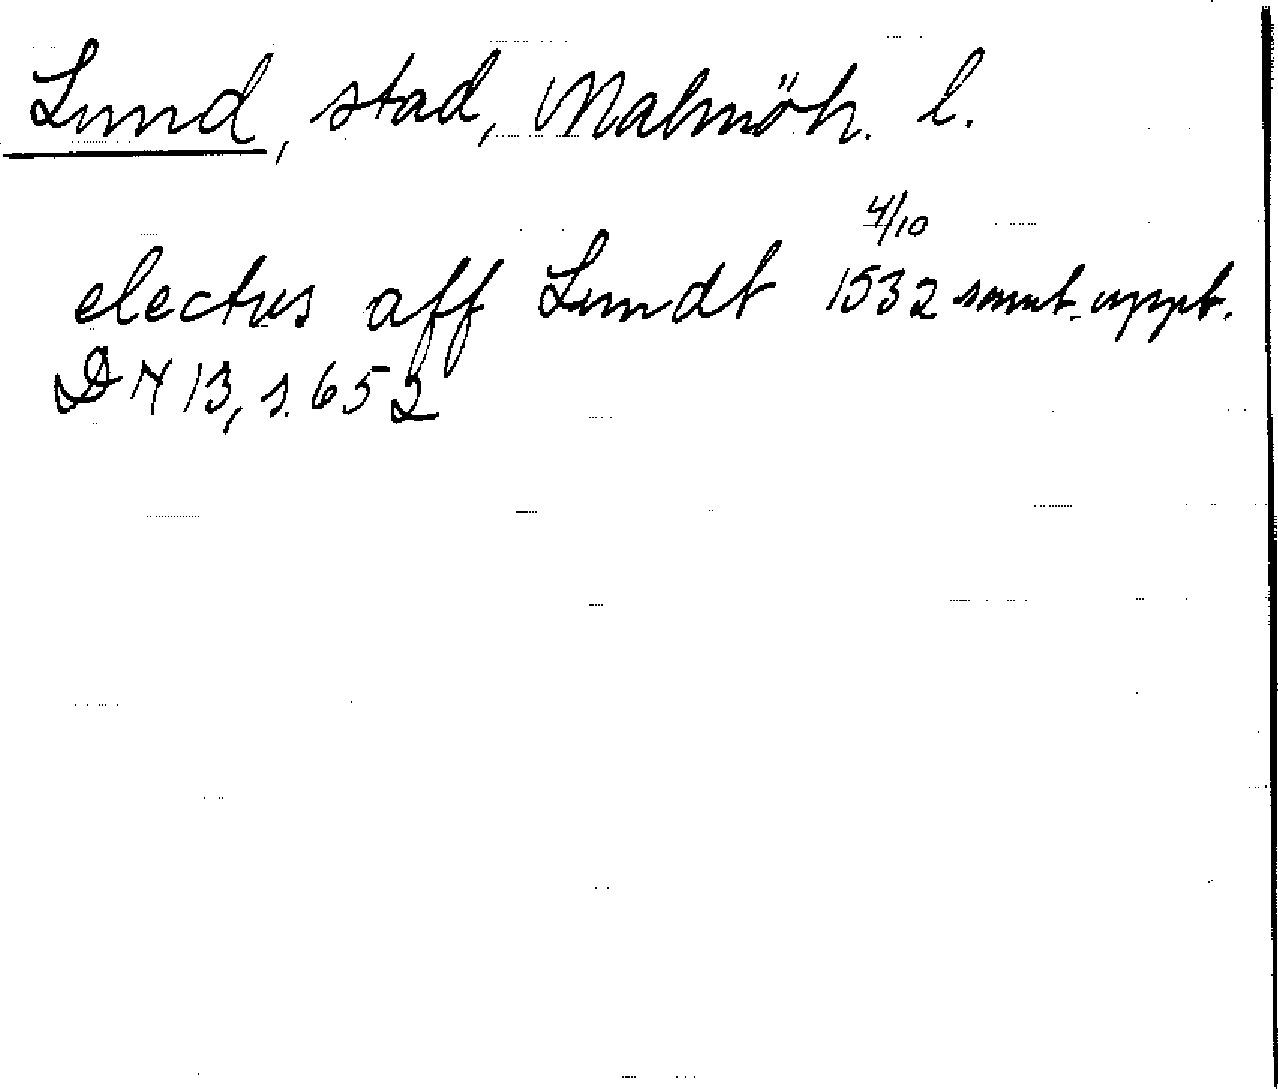 Lund, stad, Malmöh. l.
electus aff Lundt 4/10 1532 samt. uppt.
DN 13, s. 652